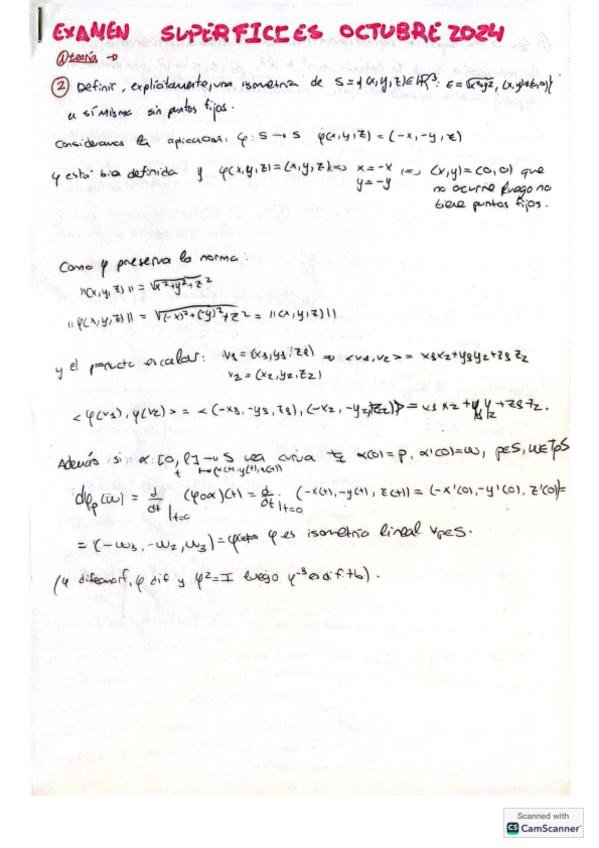 EXAMEN SUPERFICIES OCTUBRE 2024
① teoría →
② Definir, explícitamente, una isometría de S={(x,y,z)∈ℝ³: z=√x²+y², (x,y)≠(0,0)}
a sí misma sin puntos fijos.
Consideramos la aplicación: φ: S→S φ(x,y,z)=(-x,-y,z)
φ está bien definida y φ(x,y,z)=(x,y,z) ⇔ x=-x ⇔ (x,y)=(0,0) que
y=-y no ocurre luego no
tiene puntos fijos.
Como φ preserva la norma:
||(x,y,z)|| = √x²+y²+z²
||φ(x,y,z)|| = √(-x)²+(-y)²+z² = ||(x,y,z)||
y el producto escalar: v₁=(x₁,y₁,z₁) ⇒ <v₁,v₂> = x₁x₂+y₁y₂+z₁z₂
v₂=(x₂,y₂,z₂)
<φ(v₁),φ(v₂)> = <(-x₁,-y₁,z₁),(-x₂,-y₂,z₂)> = x₁x₂+y₁y₂+z₁z₂.
Además si α:[0, ]→S una curva tq α(0)=p, α'(0)=w, p∈S, w∈TpS
t↦(x(t),y(t),z(t))
dφp(w) = d/dt|t=0 (φ∘α)(t) = d/dt|t=0 (-x(t),-y(t),z(t)) = (-x'(0),-y'(0),z'(0))=
= (-w₁,-w₂,w₃)=φ(w) φ es isometría lineal ∀p∈S.
(φ difeomorf, φ dif y φ²=I luego φ⁻¹ es dif tb).
Scanned with
CS CamScanner